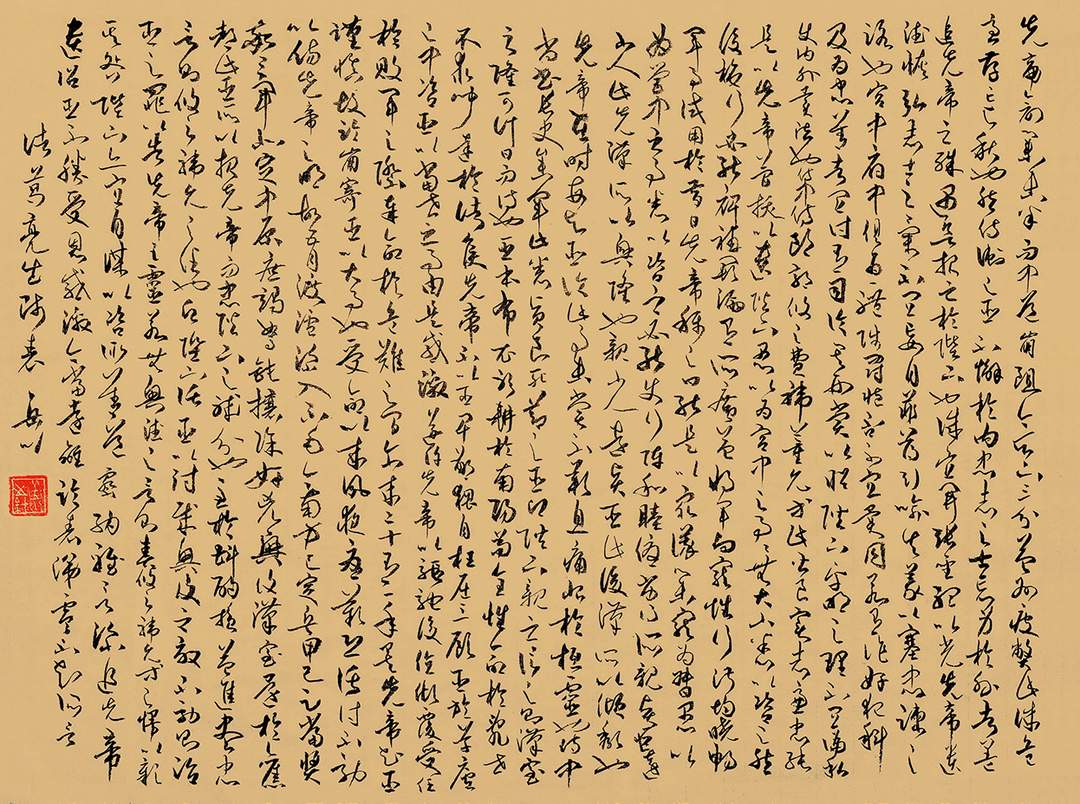 先帝創業未半而中道崩殂今天下三分益州疲弊此誠危
急存亡之秋也然侍衛之臣不懈於內忠志之士忘身於外者蓋
追先帝之殊遇欲報之於陛下也誠宜開張聖聽以光先帝遺
德恢弘志士之氣不宜妄自菲薄引喻失義以塞忠諫之
路也宮中府中俱為一體陟罰臧否不宜異同若有作奸犯科
及為忠善者宜付有司論其刑賞以昭陛下平明之理不宜偏私
使內外異法也侍中侍郎郭攸之費禕董允等此皆良實志慮忠純
是以先帝簡拔以遺陛下愚以為宮中之事事無大小悉以咨之然
後施行必能裨補闕漏有所廣益將軍向寵性行淑均曉暢
軍事試用於昔日先帝稱之曰能是以眾議舉寵為督愚以
為營中之事悉以咨之必能使行陣和睦優劣得所親賢臣遠
小人此先漢所以興隆也親小人遠賢臣此後漢所以傾頹也
先帝在時每與臣論此事未嘗不歎息痛恨於桓靈也侍中
尚書長史參軍此悉貞良死節之臣願陛下親之信之則漢室
之隆可計日而待也臣本布衣躬耕於南陽苟全性命於亂世
不求聞達於諸侯先帝不以臣卑鄙猥自枉屈三顧臣於草廬
之中咨臣以當世之事由是感激遂許先帝以驅馳後值傾覆受任
於敗軍之際奉命於危難之間爾來二十有一年矣先帝知臣
謹慎故臨崩寄臣以大事也受命以來夙夜憂歎恐託付不效
以傷先帝之明故五月渡瀘深入不毛今南方已定兵甲已足當獎
率三軍北定中原庶竭駑鈍攘除奸凶興復漢室還於舊
都此臣所以報先帝而忠陛下之職分也至於斟酌損益進盡忠
言則攸之禕允之任也願陛下託臣以討賊興復之效不效則治
臣之罪以告先帝之靈若無興德之言則責攸之禕允等之慢以彰
其咎陛下亦宜自謀以諮諏善道察納雅言深追先帝
遺詔臣不勝受恩感激今當遠離臨表涕零不知所言
諸葛亮出師表